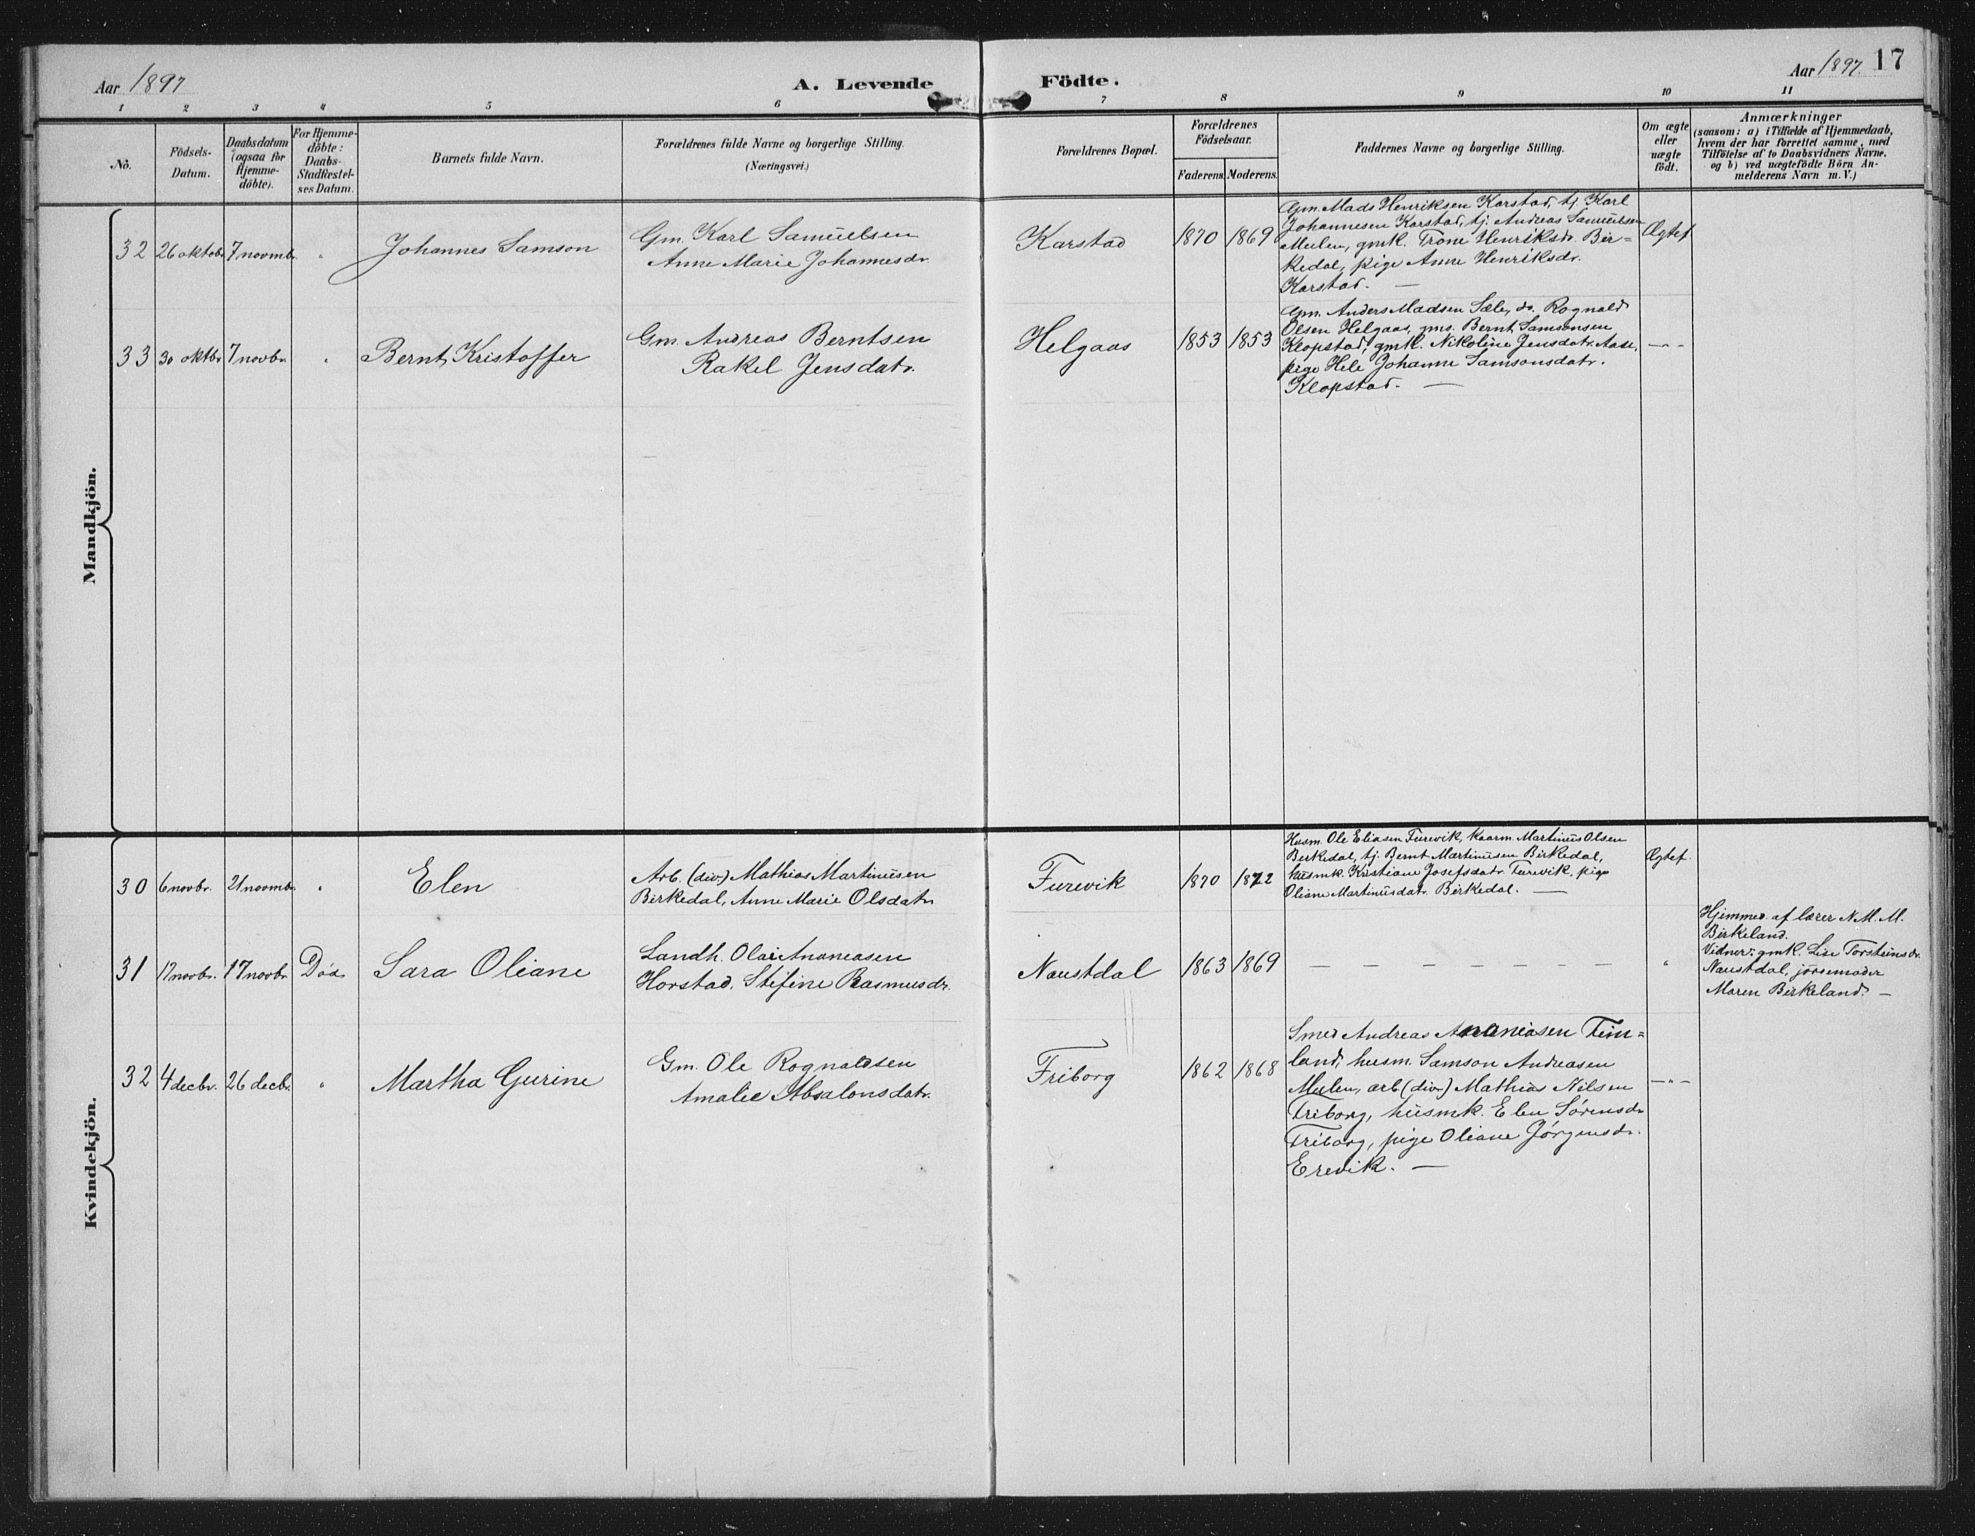 Aar 1897
A. Levende Födte.
Aar 1897. 17
1 2 3 4 5 6 7 8 9 10 11
No.
Födsels-
Datum.
Daabsdatum
(ogsaa for
Hjemme-
döbte).
For Hjemme-
döbte:
Daabs-
Stadfestel-
ses Datum.
Barnets fulde Navn.
Forældrenes fulde Navne og borgerlige Stilling.
(Næringsvei.)
Forældrenes Bopæl.
Forældrenes
Födselsaar.
Faderens. Moderens.
Faddernes Navne og borgerlige Stilling.
Om ægte
eller
uægte
födt.
Anmærkninger
(saasom: a) i Tilfælde af Hjemmedaab,
hvem der har forrettet samme, med
Tilföielse af to Daabsvidners Navne,
og b) ved uægtefödte Börn An-
melderens Navn m. V.)
Mandkjön.
32 26 oktob. 7 novmb. „ Johannes Samson
Gm. Karl Samuelsen
Anne Marie Johannesdr.
Karstad 1870 1869
Gm. Mads Henriksen Karstad, tj. Karl
Johannesen Karstad, tj. Andreas Samuelsen
Mulen, gmk. Trone Henriksdr. Bir=
kedal, pige Anne Henriksdr.
Karstad. —
Ægtef.
33 30 oktbr. 7 novbr. „ Bernt Kristoffer
Gm. Andreas Berntsen
Rakel Jensdatr.
Helgaas 1853 1853
Gm. Anders Madsen Sæle, do. Rognald
Olsen Helgaas, gms. Bernt Samsonsen
Klopstad, gmk. Nikoline Jensdatr. Aase,
pige Hele Johanne Samsonsdatr.
Klopstad. —
—„—
Kvindekjön.
30 6 novbr. 21 novmb. „ Elen
Arb. (div.) Mathias Martinusen
Birkedal, Anne Marie Olsdatr.
Furevik 1870 1872
Husm. Ole Eliasen Furevik, kaarm. Martinus Olsen
Birkedal, tj. Bernt Martinusen Birkedal,
husmk. Kristiane Josefsdatr. Furevik, pige
Oliane Martinusdatr. Birkedal. —
Ægtef.
31 17 novbr. 17 novbr. Død Sara Oliane
Landh. Olai Ananiasen
Horstad, Stefine Rasmusdr.
Naustdal 1863 1869
— — — — — — —
„
Hjemmed. af lærer N. M. M.
Birkeland.
Vidner: gmk. Lise Torsteinsdr.
Naustdal, jorsemoder
Maren Birkeland. —
32 4 decbr. 26 decb. „ Martha Gurine
Gm. Ole Rognaldsen
Amalie Absalonsdatr.
Friborg 1862 1868
Smed Andreas Ananiasen Feim=
land, husm. Samson Andreasen
Mulen, arb. (div.) Mathias Nilsen
Friborg, husmk. Elen Sørensdr.
Friborg, pige Oliane Jørgensdr.
Erevik. —
—„—